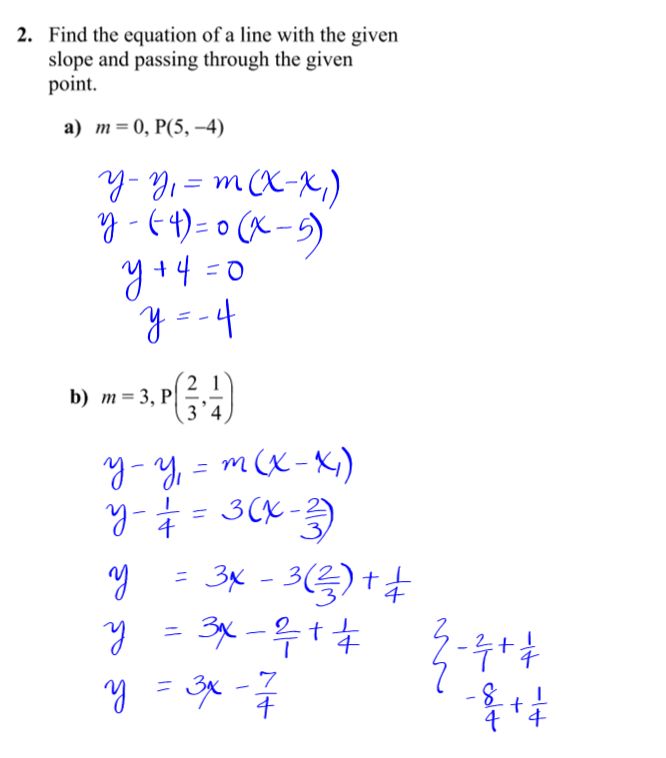 2. Find the equation of a line with the given
slope and passing through the given
point.
a) m = 0, P(5, –4)
y - y₁ = m(x-x₁)
y - (-4) = 0(x-5)
y + 4 = 0
y = -4
b) m = 3, P(2/3, 1/4)
y - y₁ = m(x-x₁)
y - 1/4 = 3(x - 2/3)
y = 3x - 3(2/3) + 1/4
y = 3x - 2/1 + 1/4
y = 3x - 7/4
{ -2/1 + 1/4
-8/4 + 1/4